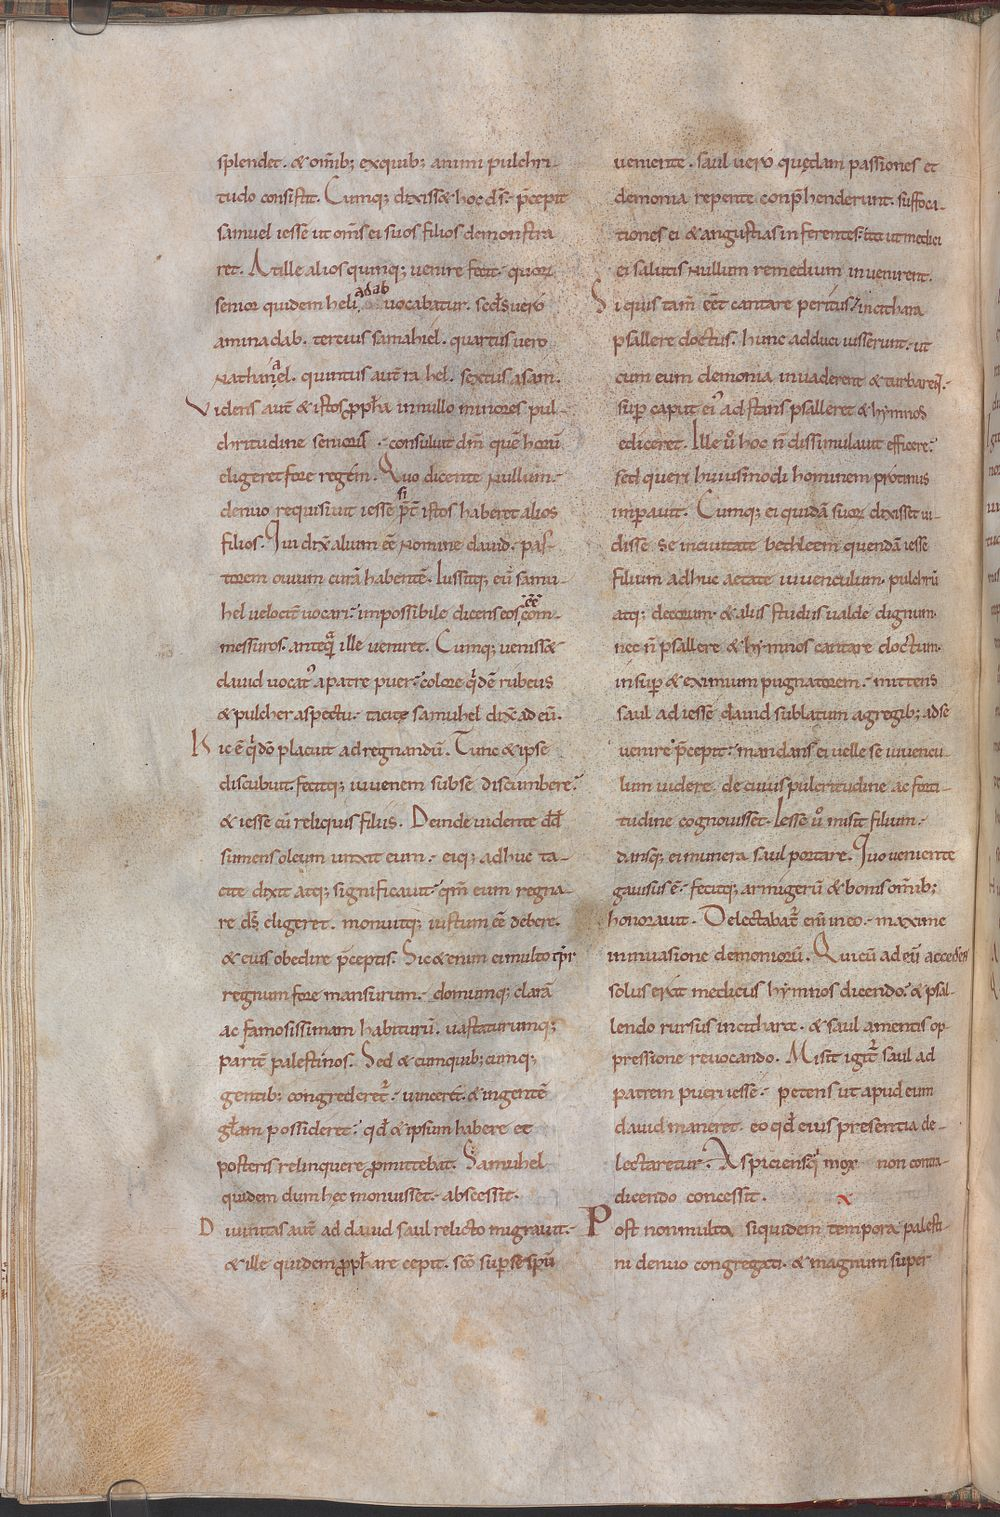 splendet. & om̅ib; exquib; animi pulchri-
tudo consistit. Cumq; dixiss& hoc d̅s. p̅cepit
samuel iesse ut om̅s ei suos filios demonstra
ret. At ille alios quinq; uenire fecit. quoꝝ
senior quidem heliadab uocabatur. sec̅ds uero
aminadab. tercius samahiel. quartus uero
Nathanael. quintus aut̅ rahel. sextus asam.
Videns aut̅ & istos ꝓph̅a in nullo minores pul-
chritudine senioris. consuluit dn̅m que̅ horu̅
eligeret fore regem. Quo dicente Nullum.
denuo requisiuit iesse si p̅t̅ istos haberet alios
filios. Qui dix̅ alium ee̅ nomine dauid. pas-
torem ouium cura̅ habente̅. Iussitq; eu̅ samu-
hel velocit̅ uocari. impossibile dicens eos ee̅ com-
messuros. anteq̅ ille ueniret. Cumq; ueniss&
dauid uocat᾽ a patre puer. colore q̅de̅ rubeus
& pulcher aspectu. tacite samuhel dix̅ ad eu̅.
Hic e̅ q̅ do̅ placuit ad regnandu̅. Tunc & ipse
discubuit. fecitq; iuuenem sub se discumbere.
& iesse cu̅ reliquis filiis. Deinde uidente dd̅
sumens oleum unxit eum. eiq; adhuc ta-
cite dixit atq; significauit. qm̅ eum regna-
re d̅s eligeret. monuitq; iustum ee̅ debere.
& eius obedire p̅ceptis. Sic & enim ei multo tp̅r
regnum fore mansurum. domumq; clara̅
ac famosissimam habituru̅. uastaturumq;
parit̅ palestinos. Sed & cumquib; cumq;
gentib; congrederet᾽. uinceret. & ingente̅
gl̅am possideret. qd̅ & ipsum habere et
posteris relinquere ꝓmittebat. Samuhel
quidem dum hec monuisset. abscessit.
Diuinitas aut̅ ad dauid saul relicto migrauit.
& ille quidem ꝓph̅are cepit. sc̅o sup̅ se sp̅u
ueniente. saul uero quędam passiones et
demonia repente conp̅henderunt. suffoca-
tiones ei & angustias inferentes. ita ut medici
ei salutis Nullum remedium inuenirent.
Si quis tam̅ ee̅t cantare peritus. in cithara
psallere doctus. hunc adduci iusserunt. ut
cum eum demonia inuaderent & turbarent.
sup̅ caput ei᾽ adstans psalleret & hymnos
ediceret. Ille u̅o hoc n̅ dissimulauit efficere.
sed queri huiusmodi hominem protinus
imp̅auit. Cumq; ei quida̅ suoꝝ dixisset ui-
disse se in ciuitate bethleem quenda̅ iesse
filium adhuc aetate iuuenculum. pulchru̅
atq; decorum. & aliis studiis ualde dignum.
nec n̅ psallere & hymnos cantare doctum.
insup̅ & eximium pugnatorem. mittens
saul ad iesse dauid sublatum a gregib; ad se
uenire p̅cepit. mandans ei uelle se iuuencu-
lum uidere. de cuius pulcritudine ac forti-
tudine cognouisset. Iesse u̅o misit filium.
dansq; ei munera saul portare. Quo ueniente
gauisus e̅. fecitq; armigeru̅ & bonis om̅ib;
honorauit. Delectabat᾽ eni̅ in eo. maxime
in inuasione demonioru̅. Qui cu̅ ad eu̅ accedens
solus erat medicus hymnos dicendo. & psal-
lendo rursus in cithara. & saul a mentis op-
pressione reuocando. Misit igit᾽ saul ad
patrem pueri iesse. petens ut apud eum
dauid maneret. eo qd̅ eius presentia de-
lectaretur. Aspiciensq; mox non contra-
dicendo concessit.
Post non multa siquidem tempora palesti-
ni denuo congregati. & magnum super